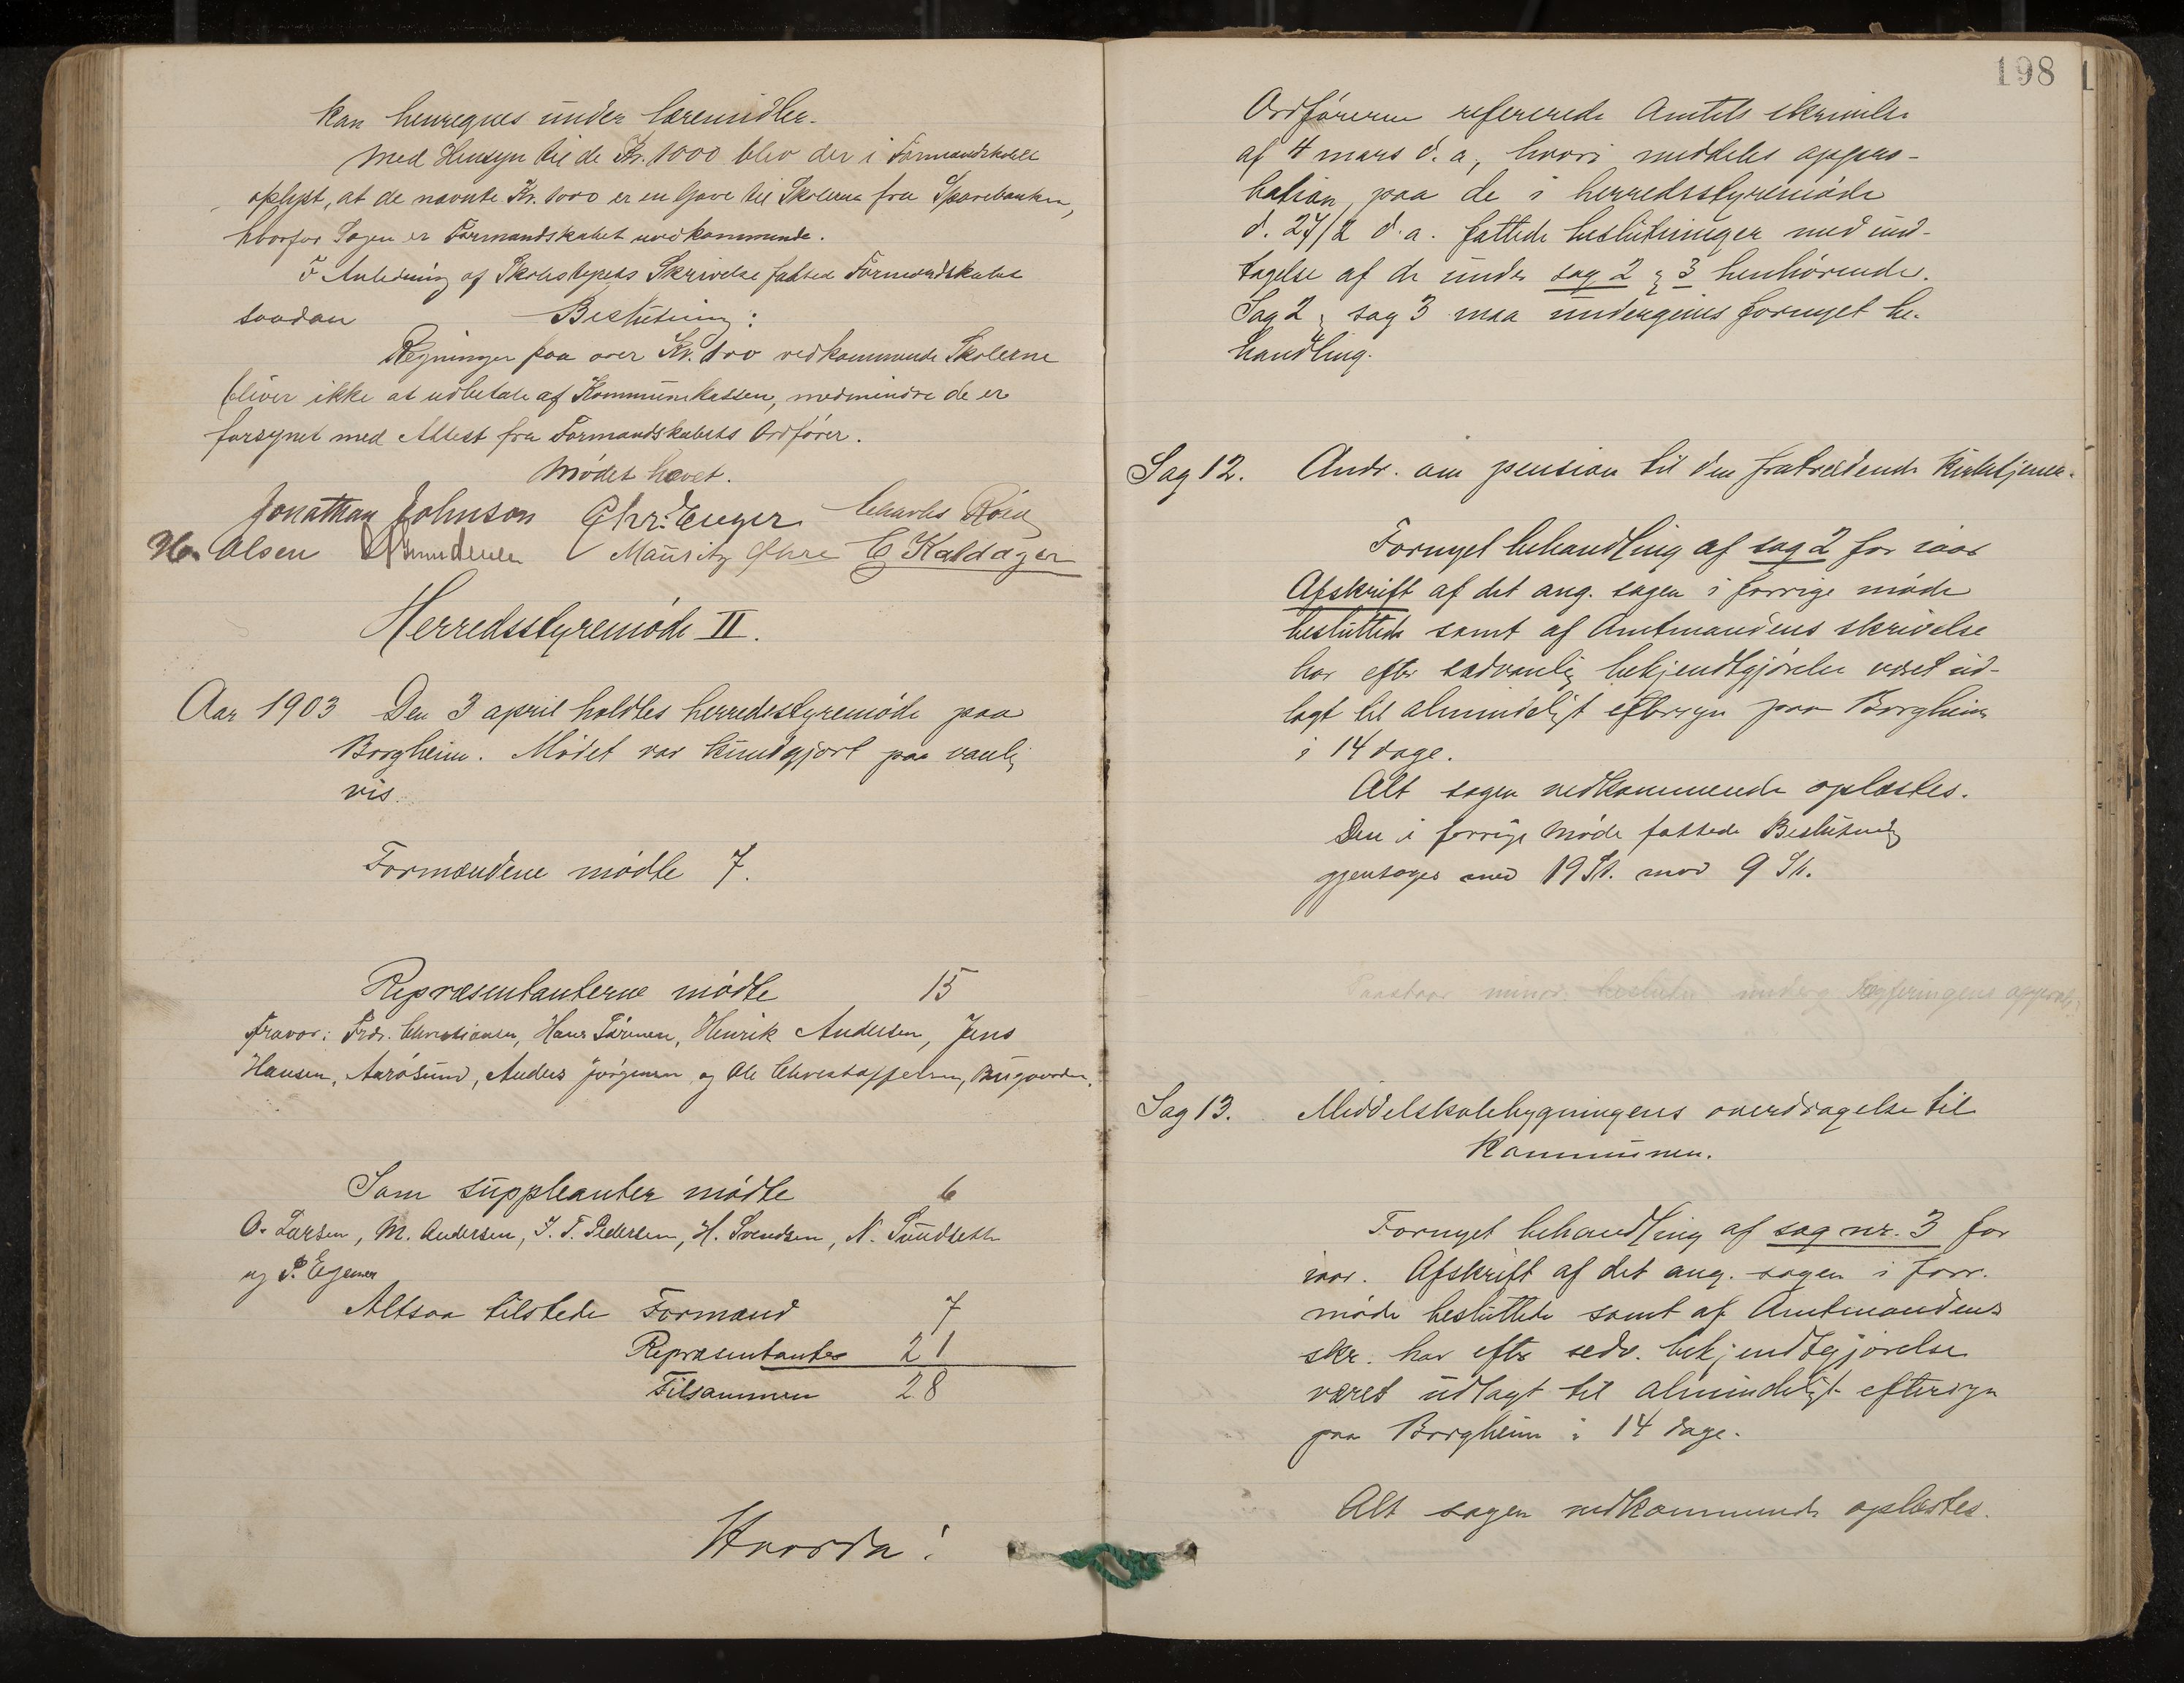 kan henregnes under læremidler.
Med Hensyn til de Kr. 1000 blev der i Formandskabet
oplyst, at de nævnte Kr. 1000 er en Gave til Skolerne fra Sparebanken,
hvorfor Sagen er Formandskabet uvedkommende.
I Anledning af Skolestyrets Skrivelse fatted Formandskabet
saadan Beslutning:
Regninger paa over Kr. 100 vedkommende Skolerne
bliver ikke at udbetale af Kommunekassen, medmindre de er
forsynet med Attest fra Formandskabets Ordfører.
Mødet hævet.
Jonathan Johnson Chr. Enger Charles Røed
H. Olsen Mauritz Øhre C Kaldager
Herredsstyremøde II.
Aar 1903 Den 3 april holdtes herredsstyremøde paa
Borgheim. Mødet var kundgjort paa vanlig
vis.
Formændene mødte 7.
Repræsentanterne mødte 15
Fravær: Fdr. Christiansen, Hans, Henrik Andersen, Jens
Hansen, Aarøsund, Anders Jørgensen og Ole Christoffersen, Bugaarden.
Som suppleanter mødte 6
O. Larsen, M. Andersen, J. T. Pedersen, H. Svendsen, N. Sundseth
og P. Egenes
Altsaa tilstede Formænd 7
Repræsentanter 21
Tilsammen 28
Hvorda:
198
Ordføreren refererede Amtets skrivelse
af 4 mars d. a, hvori meddeles appro-
bation paa de i herredsstyremøde
d. 27/2 d. a. fattede beslutninger med und-
tagelse af de under sag 2 og 3 henhørende.
Sag 2 og sag 3 maa undergives fornyet be-
handling.
Sag 12. Andr. om pension til den fratrædende kirketjener.
Fornyet behandling af sag 2 for iaar
Afskrift af det ang. sagen i forrige møde
besluttede samt af Amtmandens skrivelse
har efter sædvanlig bekjendtgjørelse været ud-
lagt til almindeligt eftersyn paa Borgheim
i 14 dage.
Alt sagen vedkommende oplæstes.
Den i forrige Møde fattede Beslutning
gjentoges med 19 St. mod 9 St.
Paastaar minor. beslutn. underg. Regjeringens approb.
Sag 13. Middelskolebygningens overdragelse til
Kommunen.
Fornyet behandling af sag nr. 3 for
iaar. Afskrift af det ang. sagen i forr.
møde besluttede samt af Amtmandens
skr. har efter sedv. bekjendtgjørelse
været udlagt til almindeligt eftersyn
paa Borgheim i 14 dage.
Alt sagen vedkommende oplæstes.